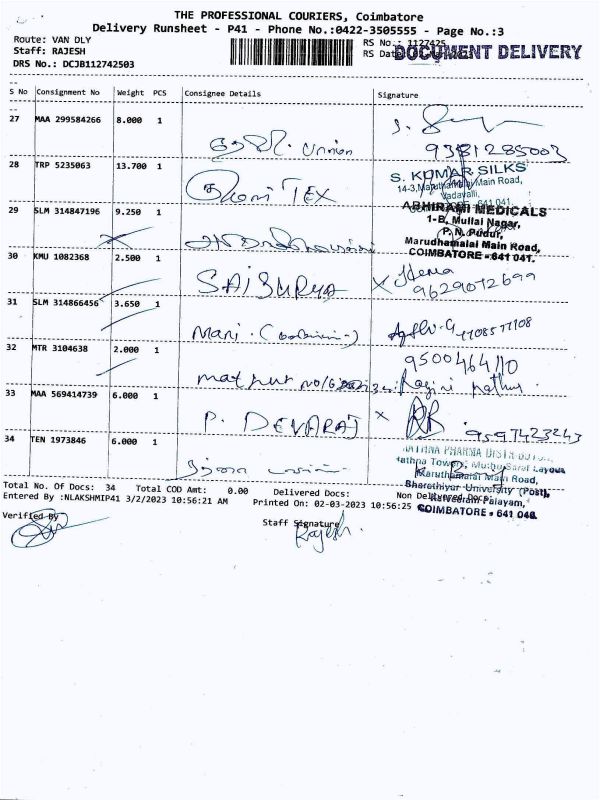 THE PROFESSIONAL COURIERS, Coimbatore
Delivery Runsheet - P41 - Phone No.:0422-3505555 - Page No.:3
Route: VAN DLY
RS No.: 1127425
Staff: RAJESH
RS Date
DOCUMENT DELIVERY
DRS No.: DCJB112742503
S No Consignment No Weight PCS Consignee Details Signature
27 MAA 299584266 8.000 1
union
9381285003
28 TRP 5235063 13.700 1
TEX
S. KUMAR SILKS
14-3, Maruthamalai Main Road,
Vadavalli,
29 SLM 314847196 9.250 1
ABHIRAMI MEDICALS
1-B, Mullai Nagar,
P. N. Pudur,
Marudhamalai Main Road,
COIMBATORE - 641 041.
30 KMU 1082368 2.500 1
SAISURYA
x Hema
9629072699
31 SLM 314866456 3.650 1
Mani.
32 MTR 3104638 2.000 1
9500464110
33 MAA 569414739 6.000 1
P. DEVARAJ
x
9597423243
34 TEN 1973846 6.000 1
RATHNA PHARMA DISTRIBUTORS
Rathna Towers,
Maruthamalai Main Road,
Bharathiyar University (Post),
COIMBATORE - 641 046.
Total No. Of Docs: 34 Total COD Amt: 0.00 Delivered Docs: Non Delivered Docs:
Entered By :NLAKSHMIP41 3/2/2023 10:56:21 AM Printed On: 02-03-2023 10:56:25
Verified By
Staff Signature
Rajesh.